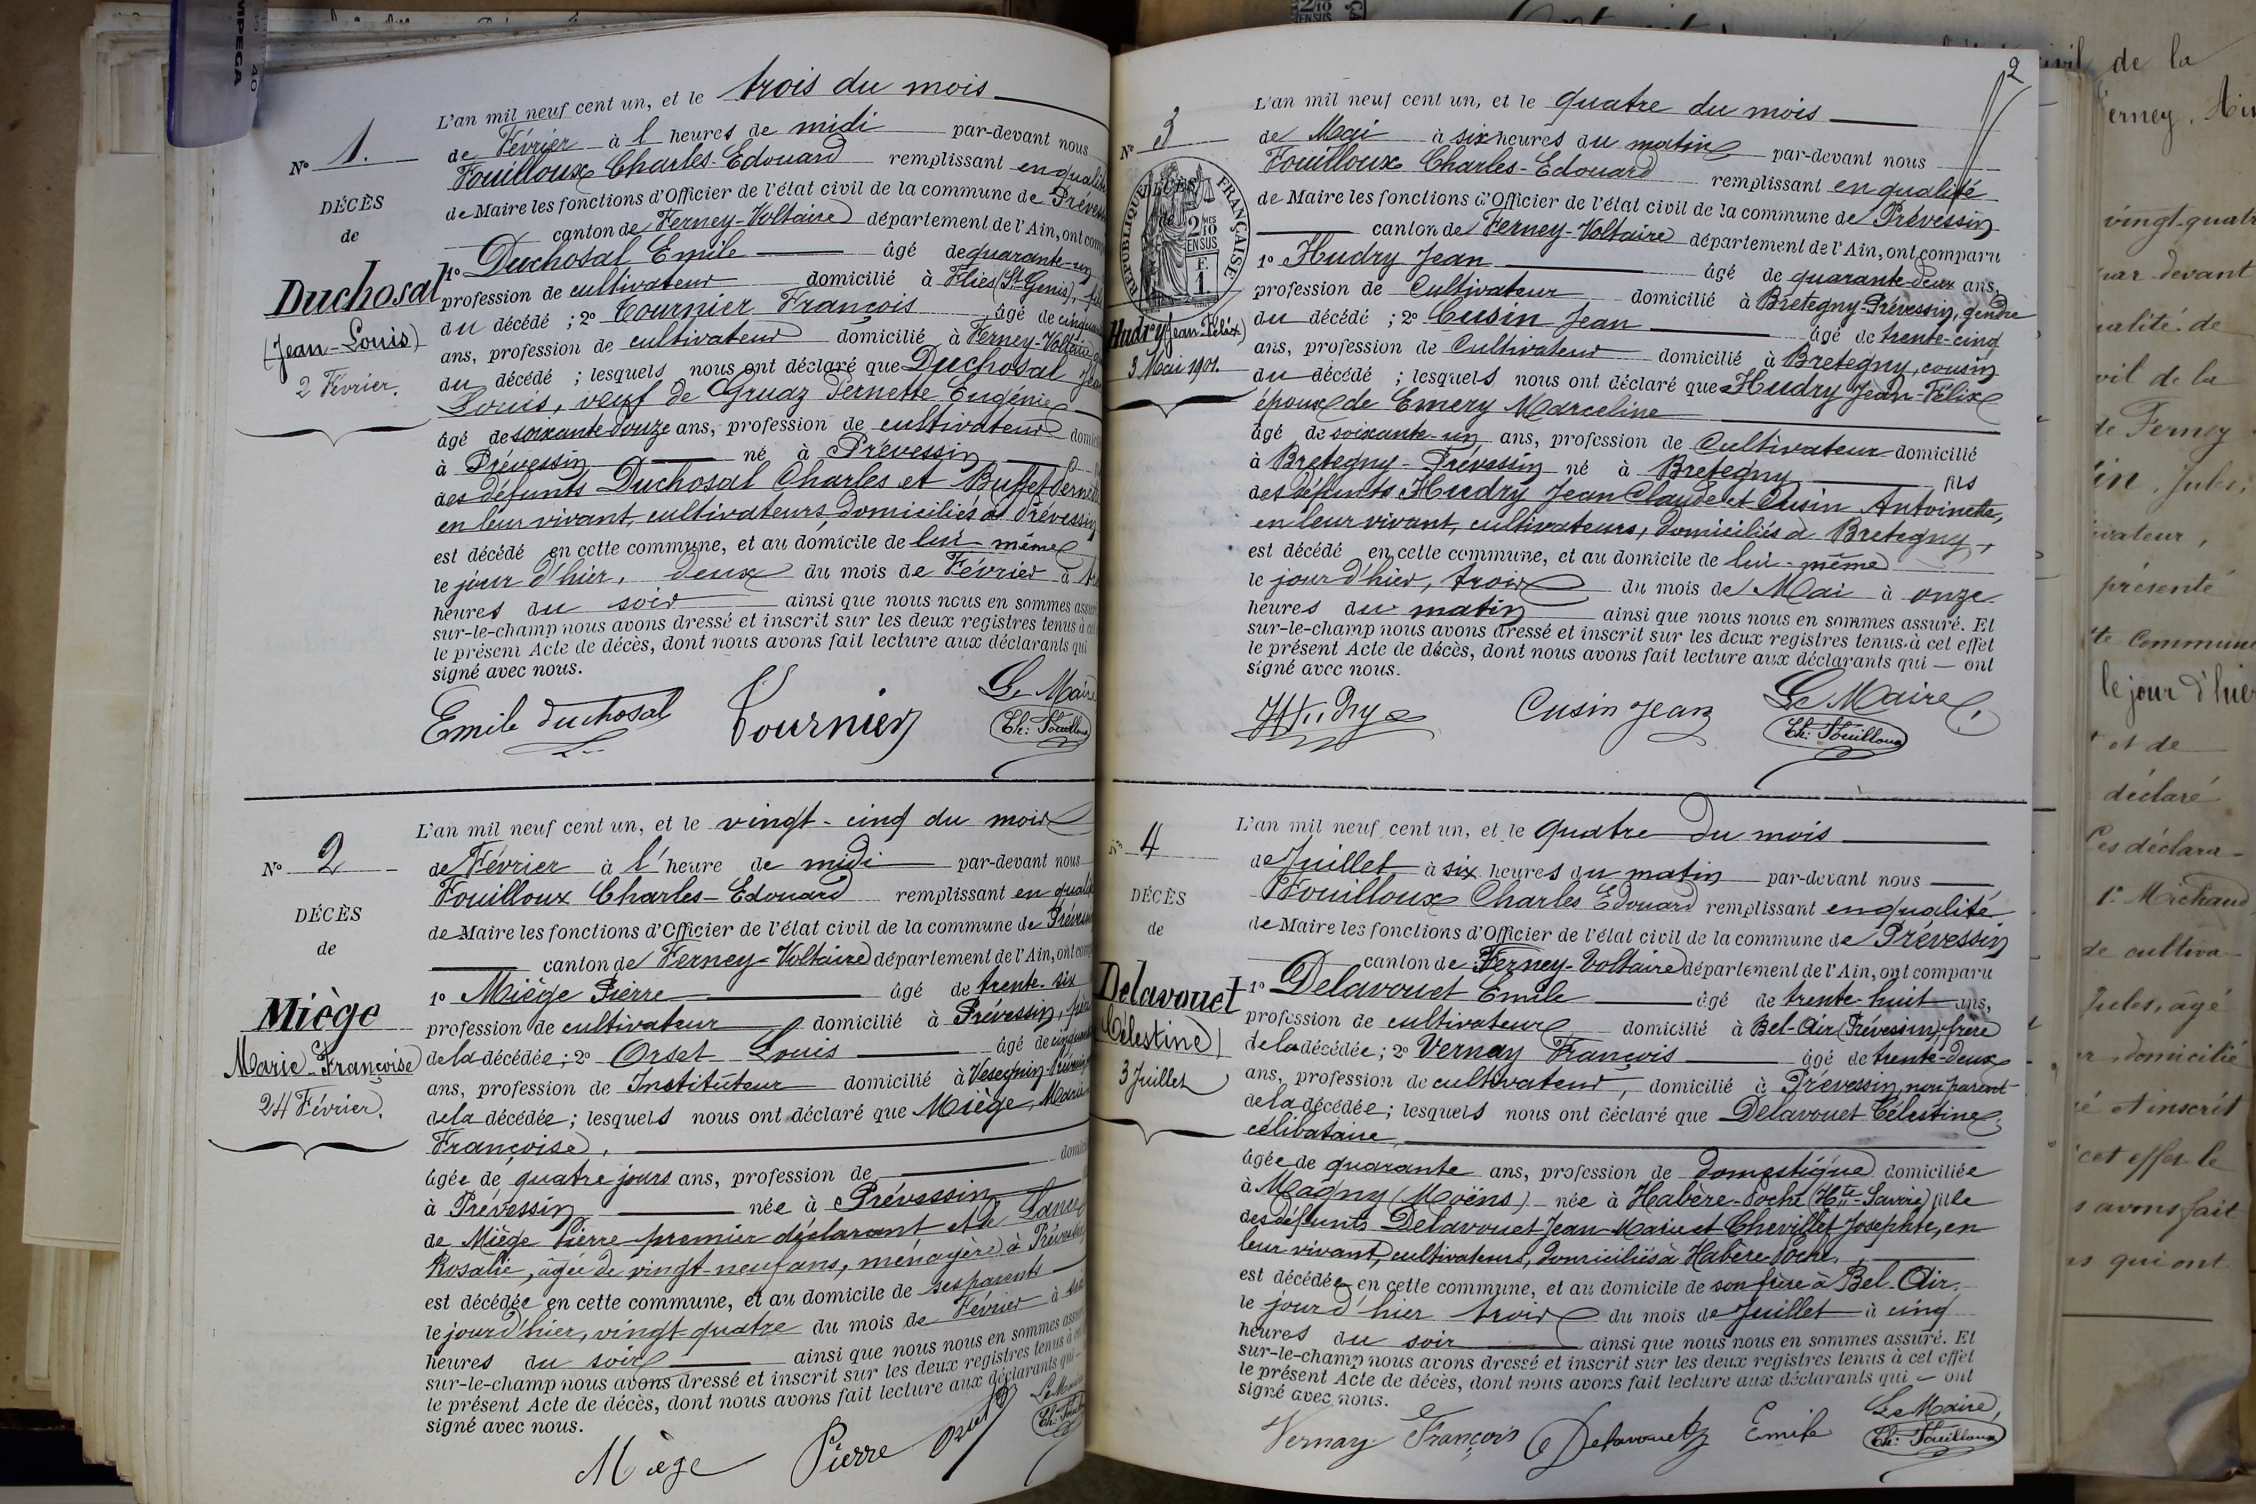 N° 1.
DÉCÈS
de
Duchosal
(Jean-Louis)
2 Février.
L'an mil neuf cent un, et le trois du mois
de Février à l heures de midi par-devant nous
Fouilloux Charles-Edouard remplissant en qualité
de Maire les fonctions d'Officier de l'état civil de la commune de Préves
canton de Ferney-Voltaire département de l'Ain, ont comp
1° Duchosal Emile âgé de quarante-un
profession de cultivateur domicilié à Flies (St-Genis), fils
du décédé ; 2° Tournier François âgé de cinquan
ans, profession de cultivateur domicilié à Ferney-Voltaire
du décédé ; lesquels nous ont déclaré que Duchosal Jean
Louis, veuf de Gruaz Pernette Eugénie
âgé de soixante douze ans, profession de cultivateur domici
à Prévessin né à Prévessin
des défunts Duchosal Charles et Buffet Pernette
en leur vivant, cultivateurs, domiciliés à Prévessin
est décédé en cette commune, et au domicile de lui même
le jour d'hier, deux du mois de Février à
heures du soir ainsi que nous nous en sommes assur
sur-le-champ nous avons dressé et inscrit sur les deux registres tenus à cet
le présent Acte de décès, dont nous avons fait lecture aux déclarants qui
signé avec nous.
Emile duchosal Tournier Le Maire
Ch: Fouilloux
N° 2
DÉCÈS
de
Miège
Marie-Françoise
24 Février.
L'an mil neuf cent un, et le vingt-cinq du mois
de Février à l'heure de midi par-devant nous
Fouilloux Charles-Edouard remplissant en qualité
de Maire les fonctions d'Officier de l'état civil de la commune de Prévessin
canton de Ferney-Voltaire département de l'Ain, ont comp
1° Miège Pierre âgé de trente-six
profession de cultivateur domicilié à Prévessin, père
de la décédée ; 2° Orset Louis âgé de cinquante
ans, profession de Instituteur domicilié à Vesegnin-Prévessin
de la décédée ; lesquels nous ont déclaré que Miège, Marie
Françoise,
âgée de quatre jours ans, profession de domici
à Prévessin née à Prévessin
de Miège Pierre premier déclarant et de Lance
Rosalie, agée de vingt-neuf ans, ménagère à Prévessin
est décédée en cette commune, et au domicile de ses parents
le jour d'hier, vingt-quatre du mois de Février à
heures du soir ainsi que nous nous en sommes assur
sur-le-champ nous avons dressé et inscrit sur les deux registres tenus à
le présent Acte de décès, dont nous avons fait lecture aux déclarants qui
signé avec nous.
Miège Pierre Orset Le Maire
2
N° 3
RÉPUBLIQUE FRANÇAISE
2/10 EN SUS
F. 1
Hudry (Jean-Félix)
3 Mai 1901.
L'an mil neuf cent un, et le quatre du mois
de Mai à six heures du matin par-devant nous
Fouilloux Charles-Edouard remplissant en qualité
de Maire les fonctions d'Officier de l'état civil de la commune de Prévessin
canton de Ferney-Voltaire département de l'Ain, ont comparu
1° Hudry Jean âgé de quarante-deux ans,
profession de Cultivateur domicilié à Bretegny-Prévessin, gendre
du décédé ; 2° Cusin Jean âgé de trente-cinq
ans, profession de Cultivateur domicilié à Bretegny, cousin
du décédé ; lesquels nous ont déclaré que Hudry Jean-Félix
époux de Emery Marceline
âgé de soixante-un ans, profession de Cultivateur domicilié
à Bretegny-Prévessin né à Bretegny fils
des défunts Hudry Jean Claude et Cusin Antoinette,
en leur vivant, cultivateurs, domiciliés à Bretegny,
est décédé en cette commune, et au domicile de lui-même
le jour d'hier, trois du mois de Mai à onze
heures du matin ainsi que nous nous en sommes assuré. Et
sur-le-champ nous avons dressé et inscrit sur les deux registres tenus à cet effet
le présent Acte de décès, dont nous avons fait lecture aux déclarants qui — ont
signé avec nous.
Hudry Cusin Jean Le Maire,
Ch: Fouilloux
N° 4
DÉCÈS
de
Delavouet
(Célestine)
3 Juillet
L'an mil neuf cent un, et le quatre du mois
de Juillet à six heures du matin par-devant nous
Fouilloux Charles Edouard remplissant en qualité
de Maire les fonctions d'Officier de l'état civil de la commune de Prévessin
canton de Ferney-Voltaire département de l'Ain, ont comparu
1° Delavouet Emile âgé de trente-huit ans,
profession de cultivateur domicilié à Bel-Air (Prévessin), frère
de la décédée ; 2° Vernay François âgé de trente-deux
ans, profession de cultivateur, domicilié à Prévessin, non parent
de la décédée ; lesquels nous ont déclaré que Delavouet Célestine
célibataire,
âgée de quarante ans, profession de domestique domiciliée
à Magny (Moëns) née à Habère-Poche (Hte-Savoie) fille
des défunts Delavouet Jean-Marie et Chevillet Josephte, en
leur vivant, cultivateurs, domiciliés à Habère Poche,
est décédée en cette commune, et au domicile de son frère à Bel-Air,
le jour d'hier trois du mois de Juillet à cinq
heures du soir ainsi que nous nous en sommes assuré. Et
sur-le-champ nous avons dressé et inscrit sur les deux registres tenus à cet effet
le présent Acte de décès, dont nous avons fait lecture aux déclarants qui — ont
signé avec nous.
Vernay François Delavouet Emile Le Maire,
Ch: Fouilloux
civil de la
Ferney, Ain
vingt-quatr
par devant
qualité de
vil de la
de Ferney
Jules,
ivateur,
présenté
te commune
le jour d'hier
et de
déclaré
Ces déclara-
1° Michaud
de cultiva-
Jules, âgé
domicilié
et inscrit
cet effet le
s avons fait
s qui ont